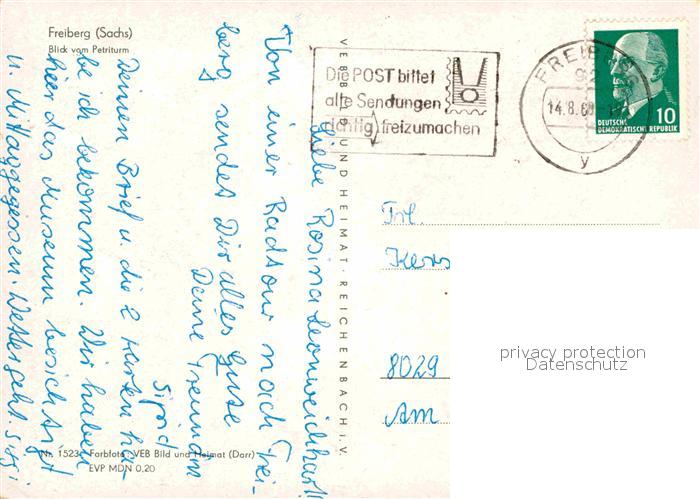 Freiberg (Sachs)
Blick vom Petriturm
Die POST bittet
alle Sendungen
richtig freizumachen
FREIBERG
92
14.8.68
y
10
DEUTSCHE
DEMOKRATISCHE REPUBLIK
VEB BILD UND HEIMAT · REICHENBACH i. V.
Liebe Rosina
Von einer Radtour nach Frei-
berg sendet Dir alles Gute
Deine Freundin
Sigrid
Deinen Brief u. die 2 Karten ha-
be ich bekommen. Wir haben
hier das Museum besichtigt
u. Mittaggegessen. Wetter geht.
Frl.
8029
Am
privacy protection
Datenschutz
Nr. 1523 Farbfoto: VEB Bild und Heimat (Darr)
EVP MDN 0,20